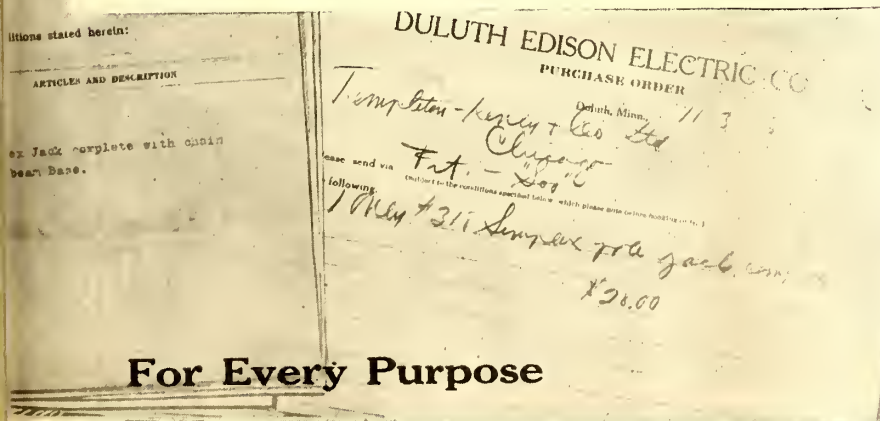 litions stated herein:
ARTICLES AND DESCRIPTION
ex Jack complete with chain
beam Base.
DULUTH EDISON ELECTRIC CO
PURCHASE ORDER
Duluth, Minn., 11 3
Templeton-Kenly & Co Ltd
Chicago
ease send via Frt. - "Soo"
(Subject to the conditions specified below which please note before
following.
1 Only #311 Simplex pole jack
$20.00
For Every Purpose